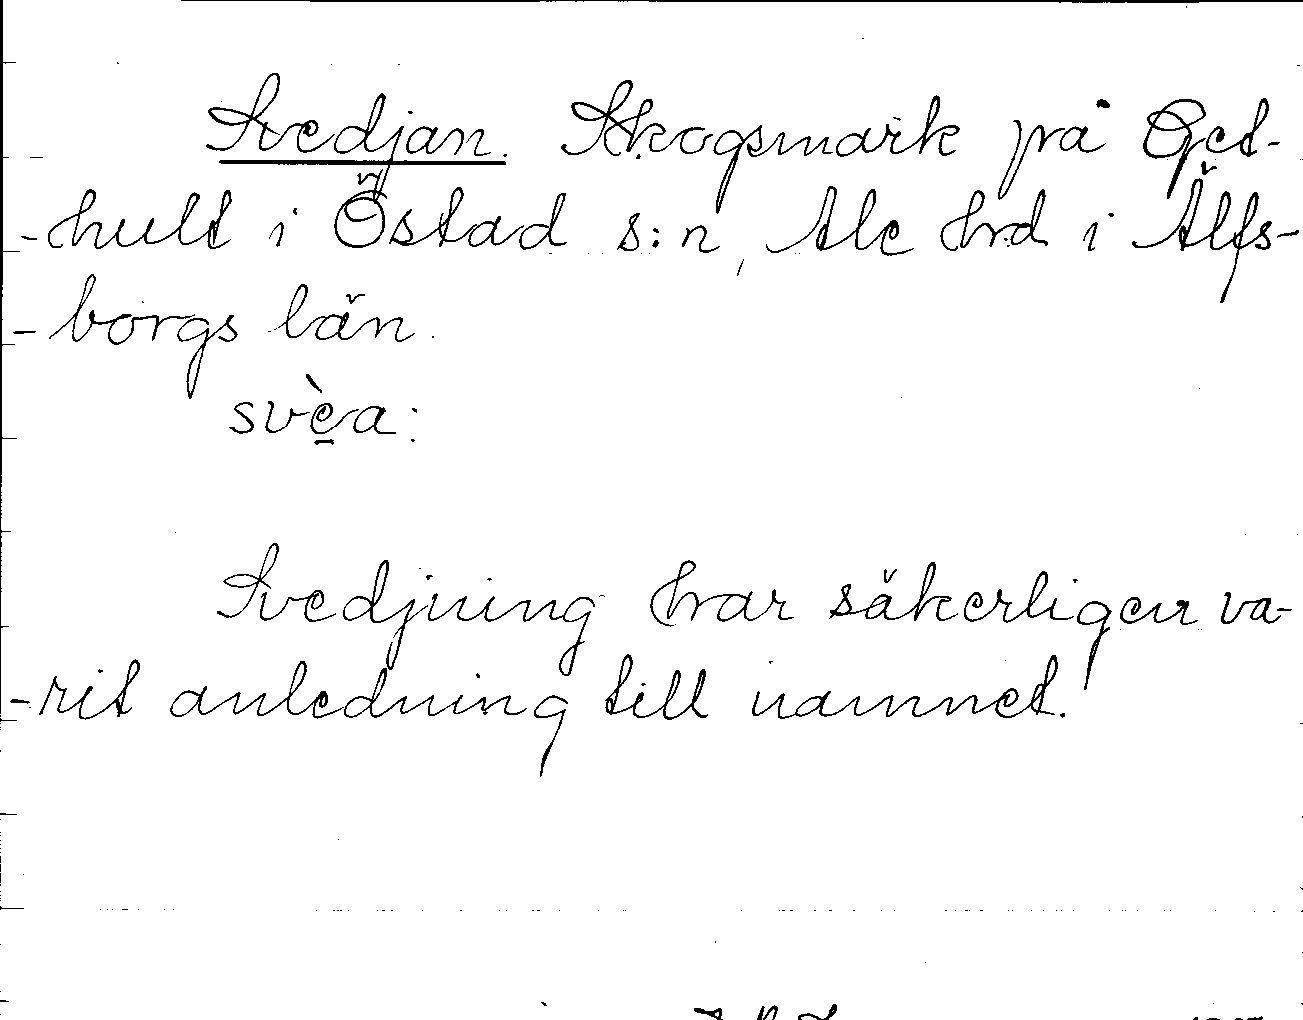 Svedjan. Skogsmark på Get-
-hult i Östad s:n, Ale hrd i Älfs-
-borgs län.
svèa:
Svedjning har säkerligen va-
-rit anledning till namnet.